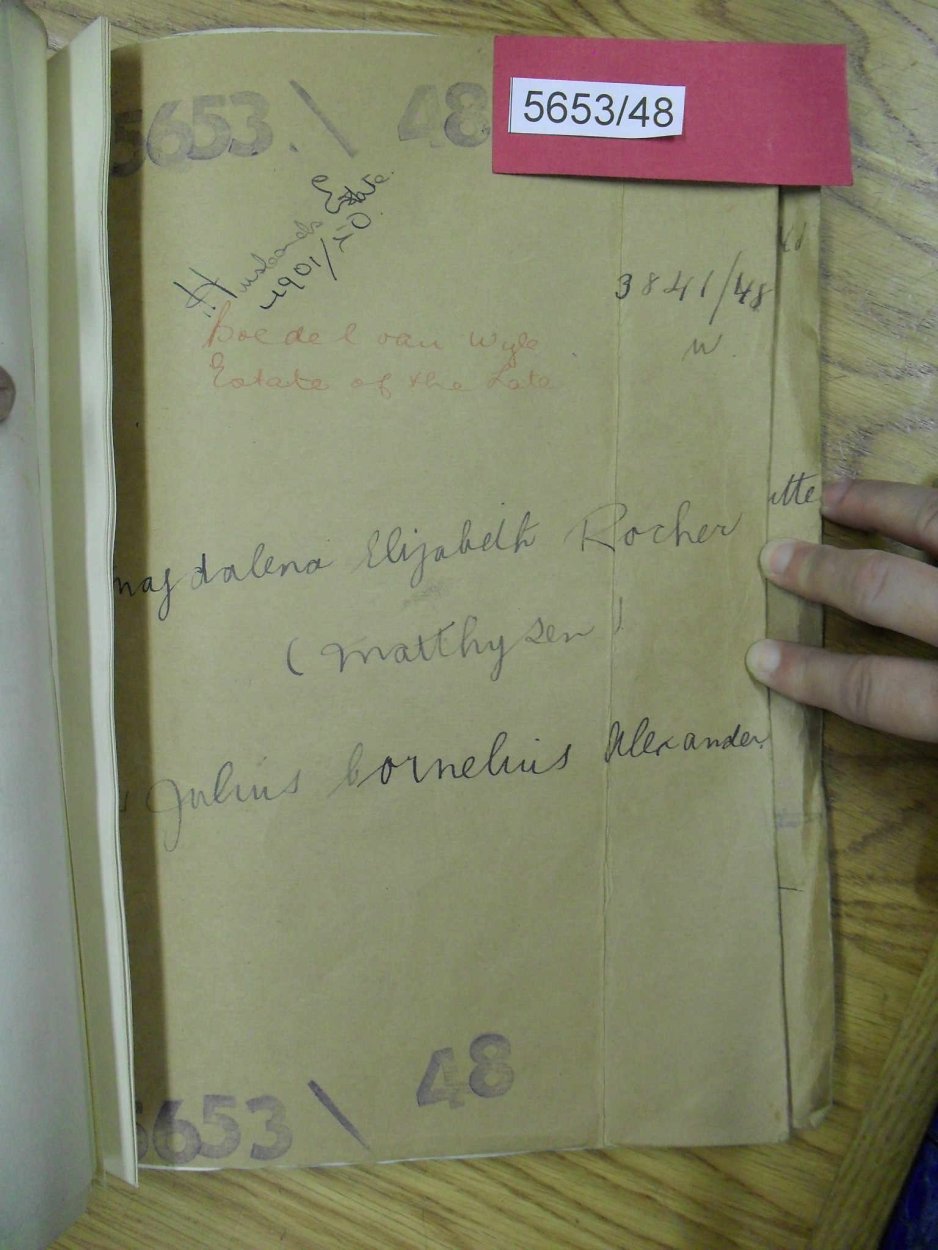 5653/48
5653 \ 48
Husbands Estate
1901/50
3841/48
W.
Boedel van Wyle
Estate of the Late
Magdalena Elizabeth Rocher
(Matthysen)
Julius Cornelius Alexander
5653 \ 48